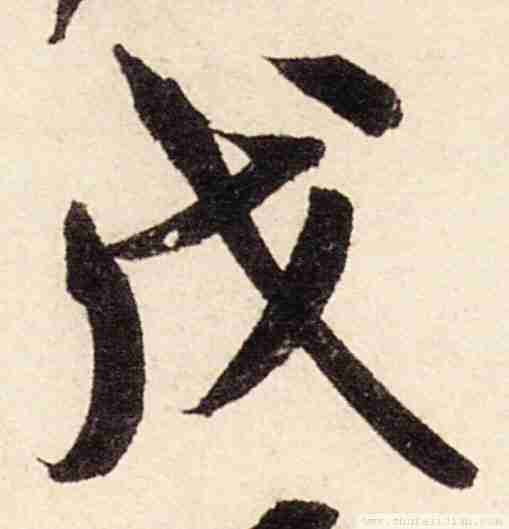 戊
www.shufazidian.com